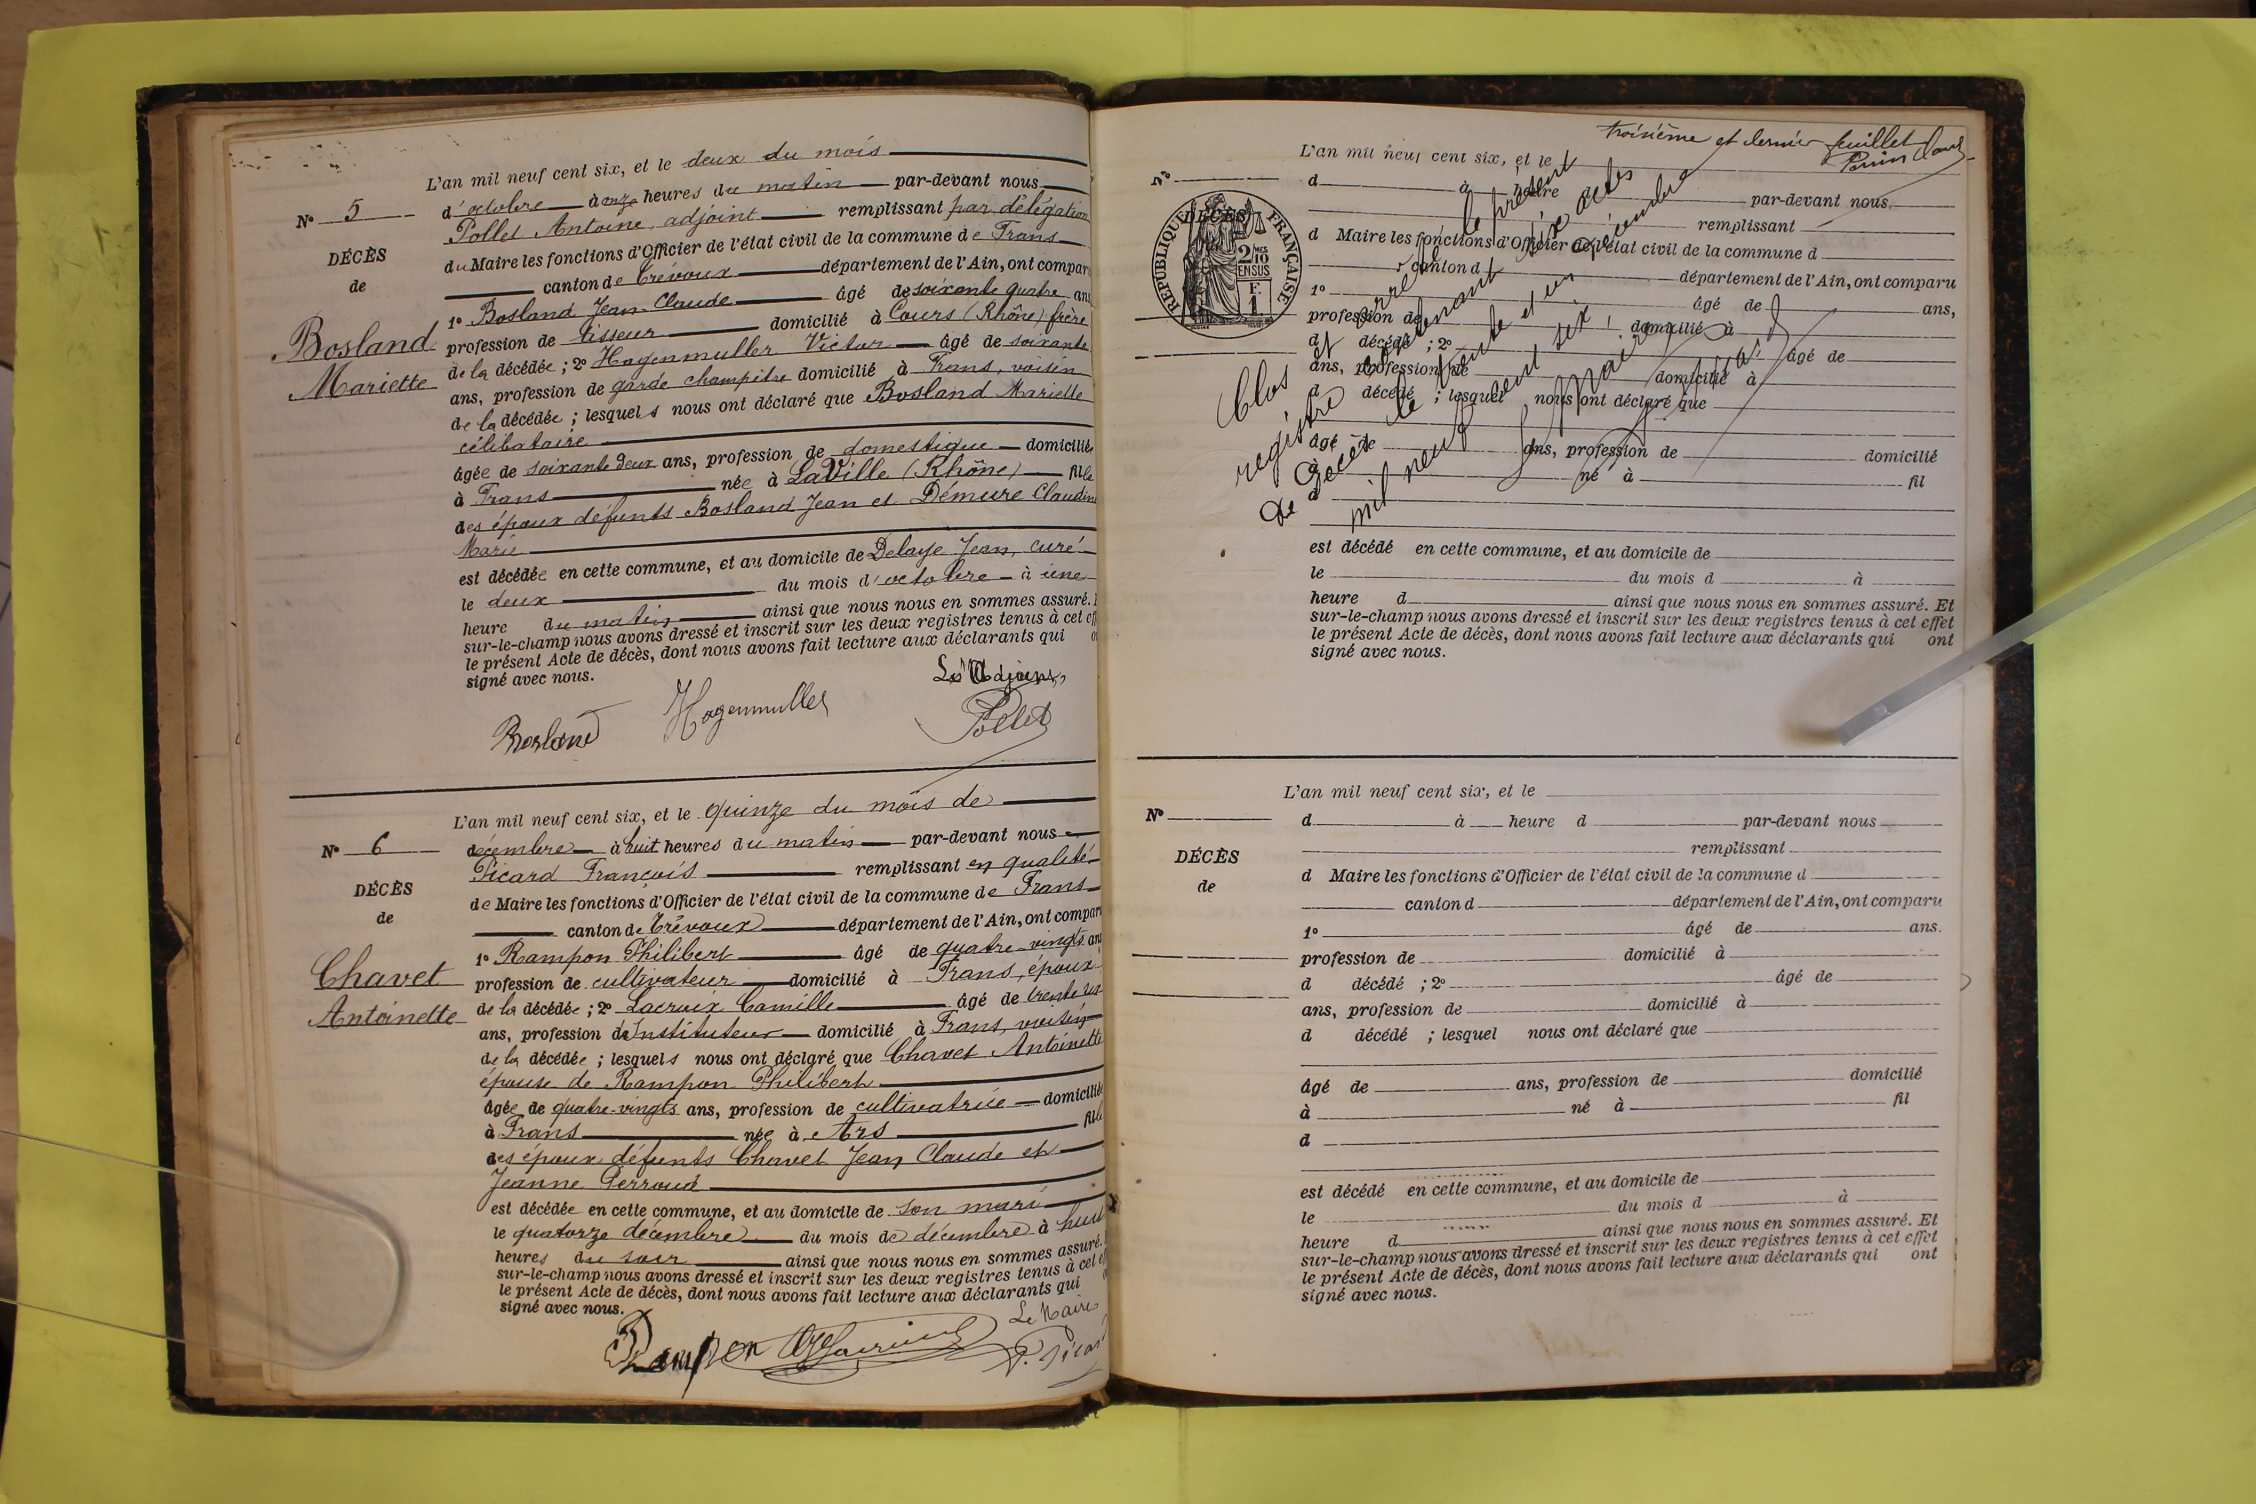 L'an mil neuf cent six, et le deux du mois
N° 5
d'octobre à onze heures du matin par-devant nous
Pollet Antoine, adjoint remplissant par délégation
DÉCÈS
du Maire les fonctions d'Officier de l'état civil de la commune de Frans
de
canton de Trévoux département de l'Ain, ont compar
1° Bosland Jean Claude âgé de soixante quatre ans
Bosland
Mariette
profession de tisseur domicilié à Cours (Rhône) frère
de la décédée ; 2° Hagenmuller Victor âgé de soixante
ans, profession de garde champêtre domicilié à Frans, voisin
de la décédée ; lesquels nous ont déclaré que Bosland Mariette
célibataire
âgée de soixante deux ans, profession de domestique domiciliée
à Frans née à LaVille (Rhône) fille
des époux défunts Bosland Jean et Démure Claudine
Marie
est décédée en cette commune, et au domicile de Delaye Jean, curé
le deux du mois d'octobre à une
heure du matin ainsi que nous nous en sommes assuré.
sur-le-champ nous avons dressé et inscrit sur les deux registres tenus à cet eff
le présent Acte de décès, dont nous avons fait lecture aux déclarants qui o
signé avec nous.
Bosland Hagenmuller Pollet
L'an mil neuf cent six, et le quinze du mois de
N° 6
décembre à huit heures du matin par-devant nous
Picard François remplissant en qualité
DÉCÈS
de Maire les fonctions d'Officier de l'état civil de la commune de Frans
de
canton de Trévoux département de l'Ain, ont compar
1° Rampon Philibert âgé de quatre-vingts ans
Chavet
Antoinette
profession de cultivateur domicilié à Frans, époux
de la décédée ; 2° Lacroix Camille âgé de trente
ans, profession d'Instituteur domicilié à Frans, voisin
de la décédée ; lesquels nous ont déclaré que Chavet Antoinette
épouse de Rampon Philibert
âgée de quatre-vingts ans, profession de cultivatrice domiciliée
à Frans née à Ars fille
des époux défunts Chavet Jean Claude et
Jeanne Perroud
est décédée en cette commune, et au domicile de son mari
le quatorze décembre du mois de décembre à huit
heures du soir ainsi que nous nous en sommes assuré.
sur-le-champ nous avons dressé et inscrit sur les deux registres tenus à cet eff
le présent Acte de décès, dont nous avons fait lecture aux déclarants qui
signé avec nous.
Le Maire
Rampon
F. Picard
troisième et dernier feuillet
L'an mil neuf cent six, et le
N°
d à heure d par-devant nous
remplissant
RÉPUBLIQUE FRANÇAISE
2/10 EN SUS
F. 1
DÉCÈS
d Maire les fonctions d'Officier de l'état civil de la commune d
canton d département de l'Ain, ont comparu
1° âgé de ans,
profession de domicilié à
d décédé ; 2° âgé de
ans, profession de domicilié à
d décédé ; lesquel nous ont déclaré que
âgé de ans, profession de domicilié
à né à fil
d
est décédé en cette commune, et au domicile de
le du mois d à
heure d ainsi que nous nous en sommes assuré. Et
sur-le-champ nous avons dressé et inscrit sur les deux registres tenus à cet effet
le présent Acte de décès, dont nous avons fait lecture aux déclarants qui ont
signé avec nous.
Clos et arrêté le présent
registre contenant six actes
de décès le trente et un décembre
mil neuf cent six,
Le Maire,
L'an mil neuf cent six, et le
N°
d à heure d par-devant nous
remplissant
DÉCÈS
de
d Maire les fonctions d'Officier de l'état civil de la commune d
canton d département de l'Ain, ont comparu
1° âgé de ans.
profession de domicilié à
d décédé ; 2° âgé de
ans, profession de domicilié à
d décédé ; lesquel nous ont déclaré que
âgé de ans, profession de domicilié
à né à fil
d
est décédé en cette commune, et au domicile de
le du mois d à
heure d ainsi que nous nous en sommes assuré. Et
sur-le-champ nous avons dressé et inscrit sur les deux registres tenus à cet effet
le présent Acte de décès, dont nous avons fait lecture aux déclarants qui ont
signé avec nous.